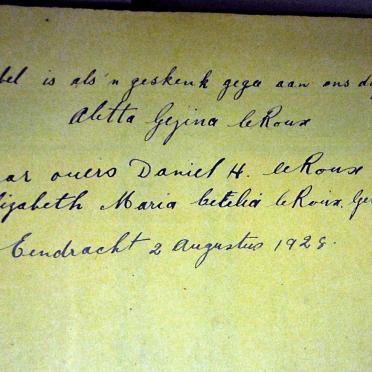 bel is als 'n geskenk gega aan ons d
Aletta Gezina le Roux
ar ouers Daniel H. le Roux
lizabeth Maria Cecelia le Roux, Ge
Eendracht 2 Augustus 1928.